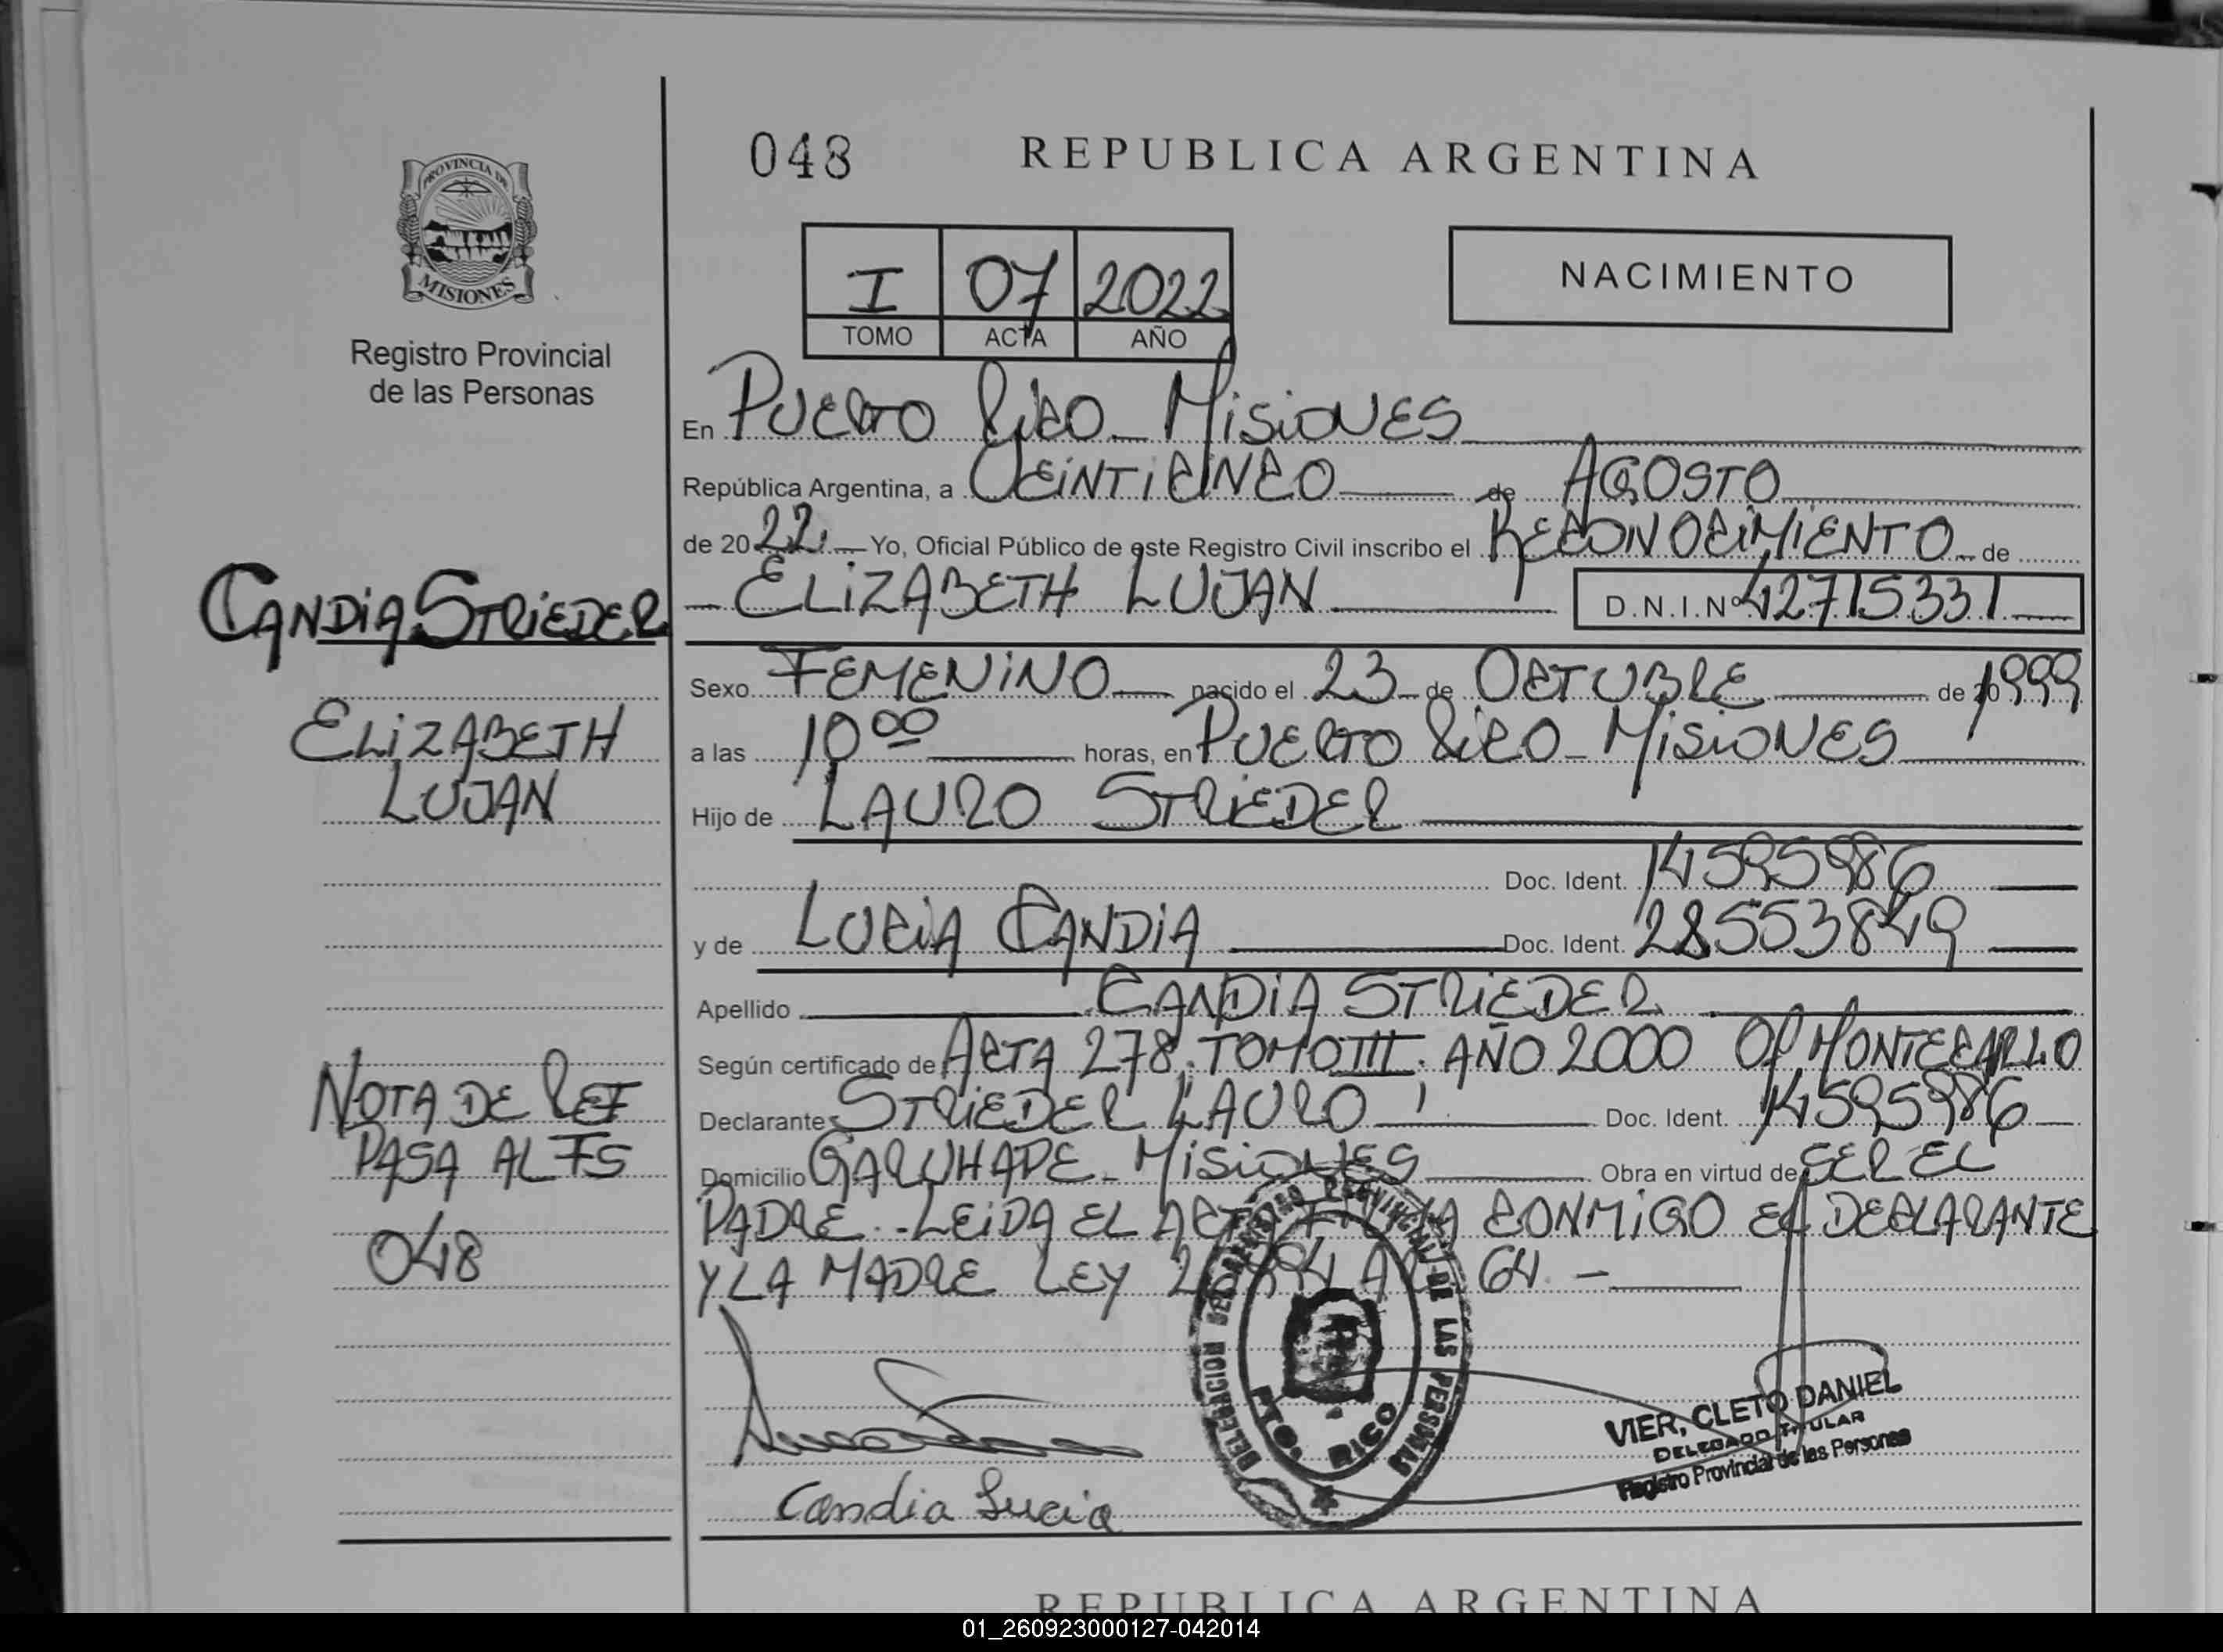 048
REPUBLICA ARGENTINA
PROVINCIA DE
MISIONES
Registro Provincial
de las Personas
I 07 2022
TOMO ACTA AÑO
NACIMIENTO
En PUERTO RICO - MISIONES
República Argentina, a VEINTICINCO de AGOSTO
de 20 22. Yo, Oficial Público de este Registro Civil inscribo el RECONOCIMIENTO de
ELIZABETH LUJAN D.N.I.Nº 42715331
CANDIA STRIEDER
ELIZABETH
LUJAN
Sexo FEMENINO nacido el 23 de OCTUBRE de 1999
a las 10 00 horas, en PUERTO RICO - MISIONES
Hijo de LAURO STRIEDER
Doc. Ident. 14595986
y de LUCIA CANDIA Doc. Ident. 28553849
Apellido CANDIA STRIEDER
Según certificado de ACTA 278. TOMO III. AÑO 2000 OF MONTECARLO
Declarante STRIEDER LAURO Doc. Ident. 14595986
Domicilio GARUHAPE - MISIONES Obra en virtud de SER EL
PADRE.- LEIDA EL ACTA FIRMA CONMIGO EL DECLARANTE
Y LA MADRE LEY 64.-
NOTA DE REF
PASA AL FS
048
DELEGACION REGISTRO PROVINCIAL DE LAS PERSONAS
PTO. RICO
VIER, CLETO DANIEL
DELEGADO TITULAR
Registro Provincial de las Personas
Candia Lucia
REPUBLICA ARGENTINA
01_260923000127-042014